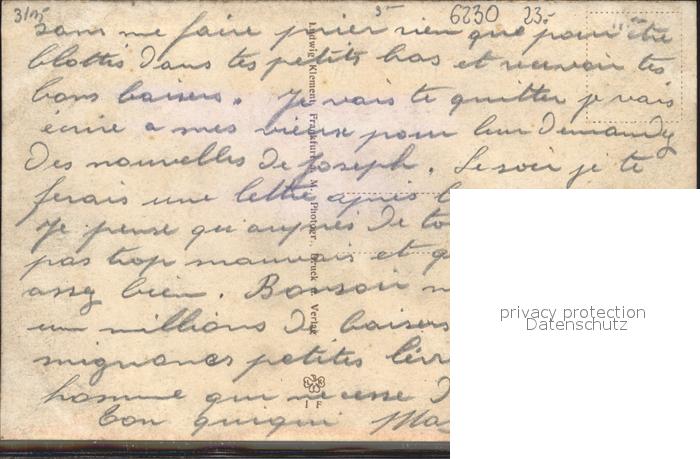 3/15 5- 6230 23.-
sans me faire prier rien que pour être
blottis dans tes petits bras et recevoir tes
bons baisers. Je vais te quitter je vais
écrire a mes vieux pour leur demander
des nouvelles de Joseph. Le soir je te
ferais une lettre après
Je pense qu'auprès de
pas trop mauvais et
assez bien. Bonsoir
un millions de baisers
mignones petites
homme qui ne cesse
Ton quiqui
Ludwig Klement, Frankfurt a. M. Photogr., Druck u. Verlag
privacy protection
Datenschutz